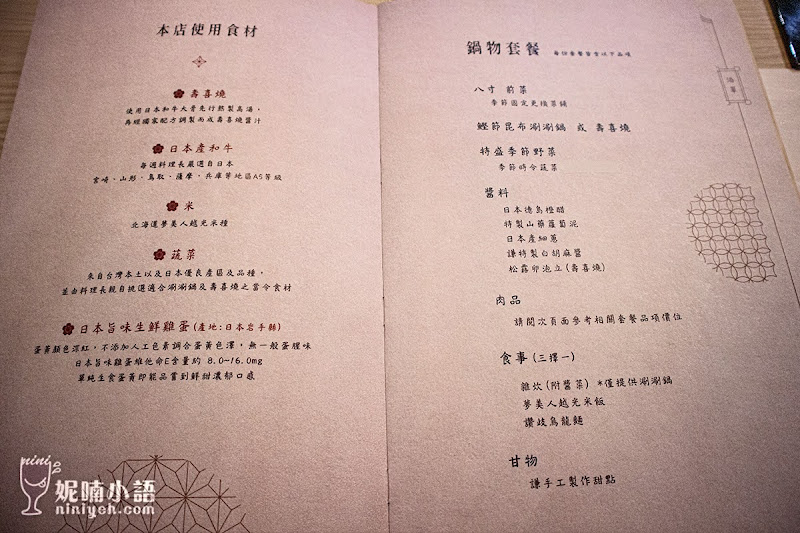 本店使用食材
壽喜燒
使用日本和牛大骨先行熬製高湯，
再經獨家配方調製而成壽喜燒醬汁
日本產和牛
每週料理長嚴選自日本
宮崎、山形、鳥取、薩摩、兵庫等地區A5等級
米
北海道夢美人越光米種
蔬菜
來自台灣本土以及日本優良產區及品種，
並由料理長親自挑選適合涮涮鍋及壽喜燒之當令食材
日本旨味生鮮雞蛋(產地:日本岩手縣)
蛋黃顏色深紅，不添加人工色素調合蛋黃色澤，無一般蛋腥味
日本旨味雞蛋維他命E含量約 8.0~16.0mg
單純生食蛋黃即能品嘗到鮮甜濃郁口感
鍋物套餐 每份套餐皆含以下品項
八寸 前菜
季節固定更換菜譜
鰹節昆布涮涮鍋 或 壽喜燒
特盛季節野菜
季節時令蔬菜
醬料
日本德島橙醋
特製山藥蘿蔔泥
日本產細蔥
謙特製白胡麻醬
松露卵泡立(壽喜燒)
肉品
請閱次頁面參考相關套餐品項價位
食事(三擇一)
雜炊(附醬菜) *僅提供涮涮鍋
夢美人越光米飯
讚岐烏龍麵
甘物
謙手工製作甜點
nini
妮喃小語
niniyeh.com